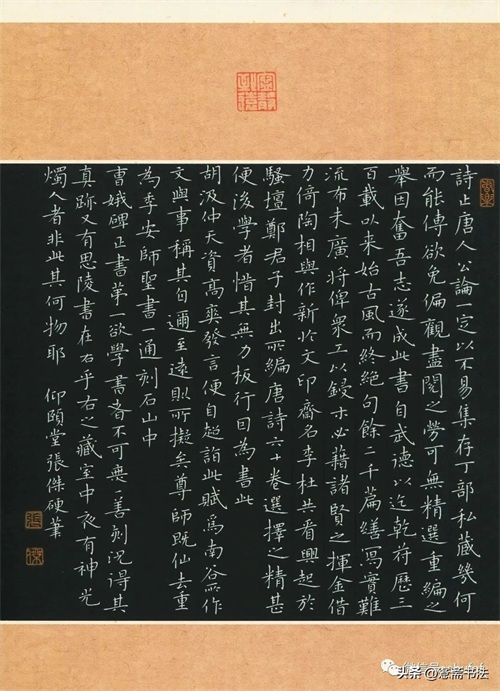 詩止唐人公論定以不易集存丁部私藏幾何
而能傳欲免偏觀盡閱之勞可無精選重編之
舉因奮吾志遂成此書自武德以迄乾符歷三
百載以來始古風而終絕句餘二千篇繕寫實難
流布未廣將俾衆工以鋟木必藉諸賢之揮金借
力倚陶相與作新於文印齋名李杜共看興起於
騷壇鄭君子封出所編唐詩六十卷選擇之精甚
便後學者惜其無力板行因為書此
胡汲仲天資高爽發言便自超詣此賦爲南谷所作
文與事稱其自邇至遠則所擬矣尊師既仙去重
為李安師聖書一通刻石山中
曹娥碑正書第一欲學書者不可無一善刻況得其
真跡又有思陵書在右乎右之藏室中夜有神光
燭人者非此其何物耶 仰頤堂張傑硬筆
張
傑
头条 @斋书法